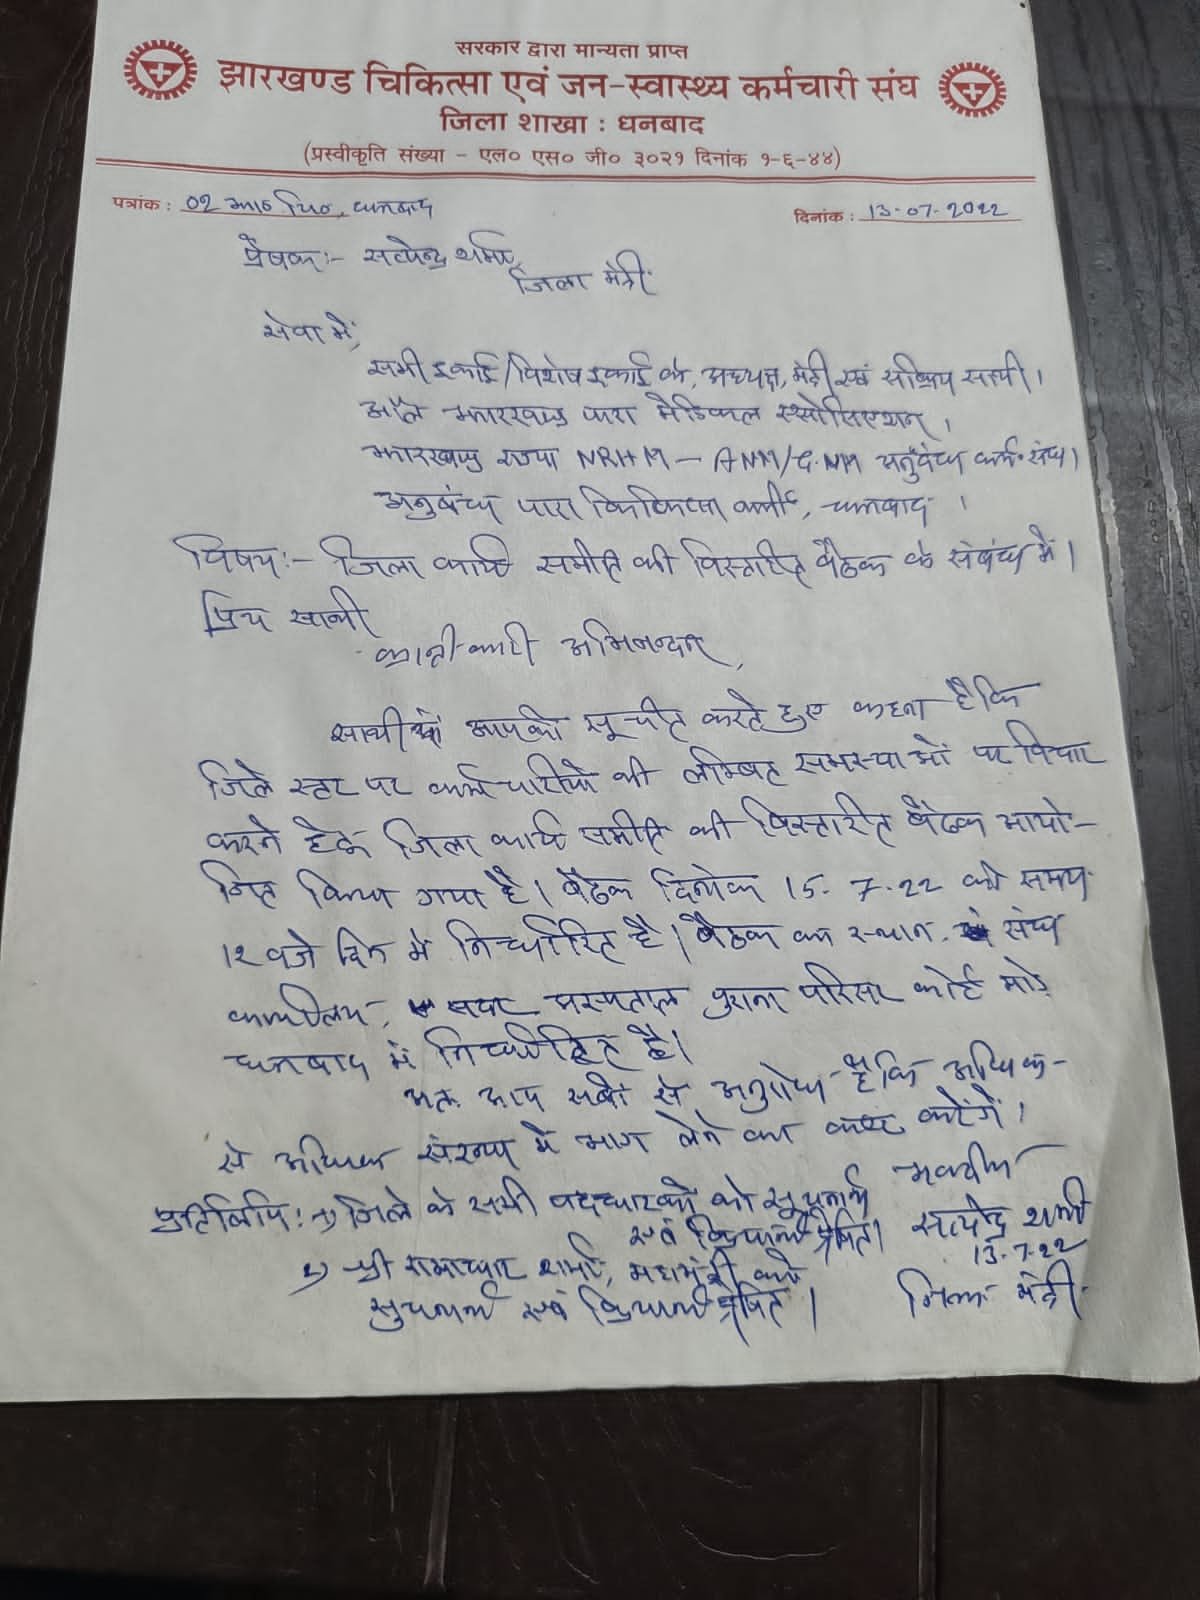 सरकार द्वारा मान्यता प्राप्त
झारखण्ड चिकित्सा एवं जन-स्वास्थ्य कर्मचारी संघ
जिला शाखा : धनबाद
(प्रस्वीकृति संख्या - एल० एस० जी० ३०२१ दिनांक १-६-४४)
पत्रांक : 02 धनबाद
दिनांक : 13-07-2022
प्रेषक :- सत्येन्द्र शर्मा,
जिला मंत्री
सेवा में,
सभी इकाई/विशेष इकाई के, अध्यक्ष, मंत्री एवं सक्रिय साथी।
ऑल झारखण्ड पारा मेडिकल एसोसिएशन।
झारखण्ड राज्य NRHM - ANM/G.NM अनुबंध कर्म॰ संघ।
अनुबंध पारा चिकित्सा कर्मी, धनबाद।
विषय :- जिला कार्य समीति की विस्तारीत बैठक के संबंध में।
प्रिय साथी
क्रान्तीकारी अभिनन्दन,
साथीयों आपको सूचीत करते हुए कहना है कि
जिले स्तर पर कर्मचारीयों की लम्बित समस्याओं पर विचार
करने हेतु जिला कार्य समीति की विस्तारीत बैठक आयो-
जित किया गया है। बैठक दिनांक 15-7-22 को समय
12 बजे दिन में निर्धारित है। बैठक का स्थान संघ
कार्यालय, सदर अस्पताल पुराना परिसर कोर्ट मोड़
धनबाद में निर्धारित है।
अतः आप सबों से अनुरोध है कि अधिक-
से अधिक संख्या में भाग लेने का कष्ट करेंगें।
भवदीय
प्रतिलिपि: 1) जिले के सभी पदधारकों को सूचनार्थ
एवं क्रियार्थ प्रेषित।
सत्येन्द्र शर्मा
13-7-22
जिला मंत्री
2) श्री रामाधार शर्मा, महामंत्री को
सुचनार्थ एवं क्रियार्थ प्रेषित।